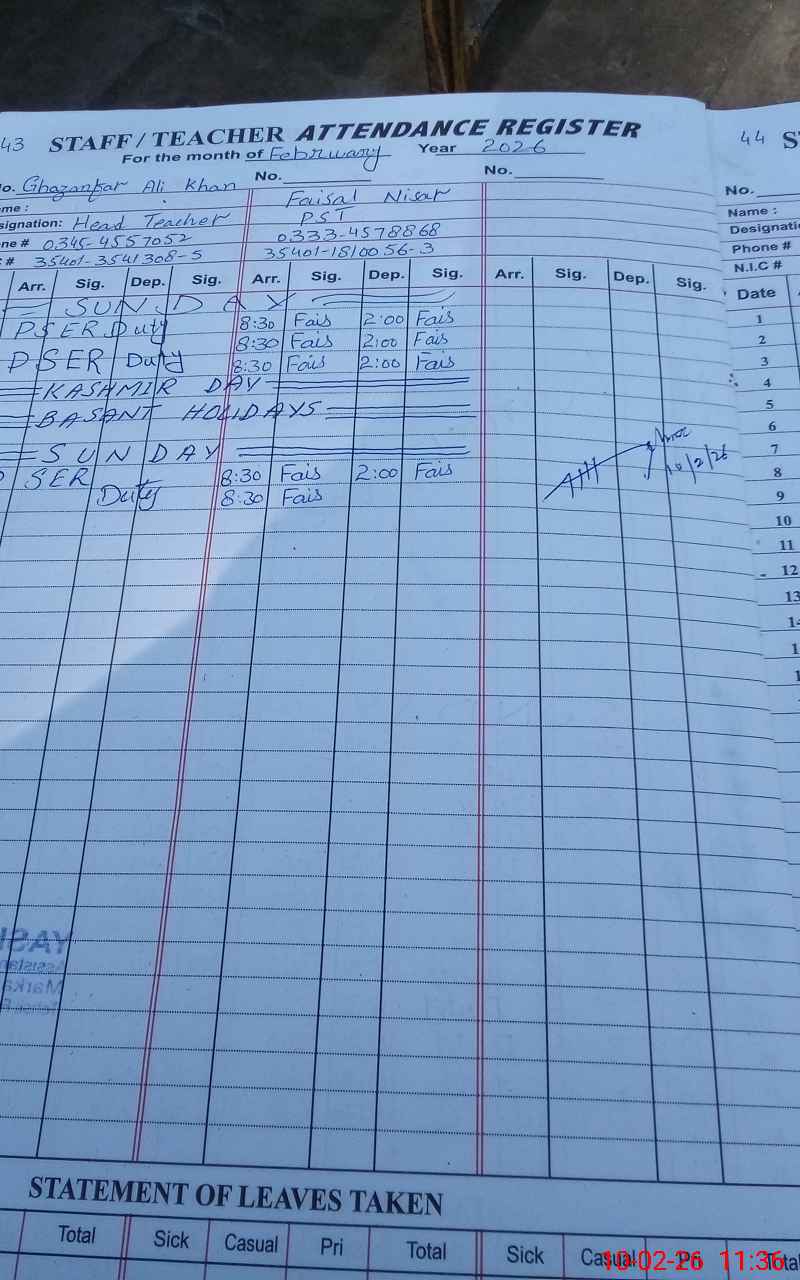 43 STAFF / TEACHER ATTENDANCE REGISTER
For the month of February Year 2026
No. No.
Ghazanfar Ali Khan Faisal Nisar
Head Teacher PST
0345-4557052 0333-4578868
35401-3541308-5 35401-1810056-3
Arr. Sig. Dep. Sig. Arr. Sig. Dep. Sig. Arr. Sig. Dep. Sig.
SUNDAY
PSER Duty 8:30 Fais 2:00 Fais
8:30 Fais 2:00 Fais
PSER Duty 8:30 Fais 2:00 Fais
KASHMIR DAY
BASANT HOLIDAYS
SUNDAY
SER 8:30 Fais 2:00 Fais
Duty 8:30 Fais
10/2/26
STATEMENT OF LEAVES TAKEN
Total Sick Casual Pri Total Sick Casual Pri
44
No.
Name :
Designati
Phone #
N.I.C #
Date
1
2
3
4
5
6
7
8
9
10
11
12
13
10-02-26 11:36